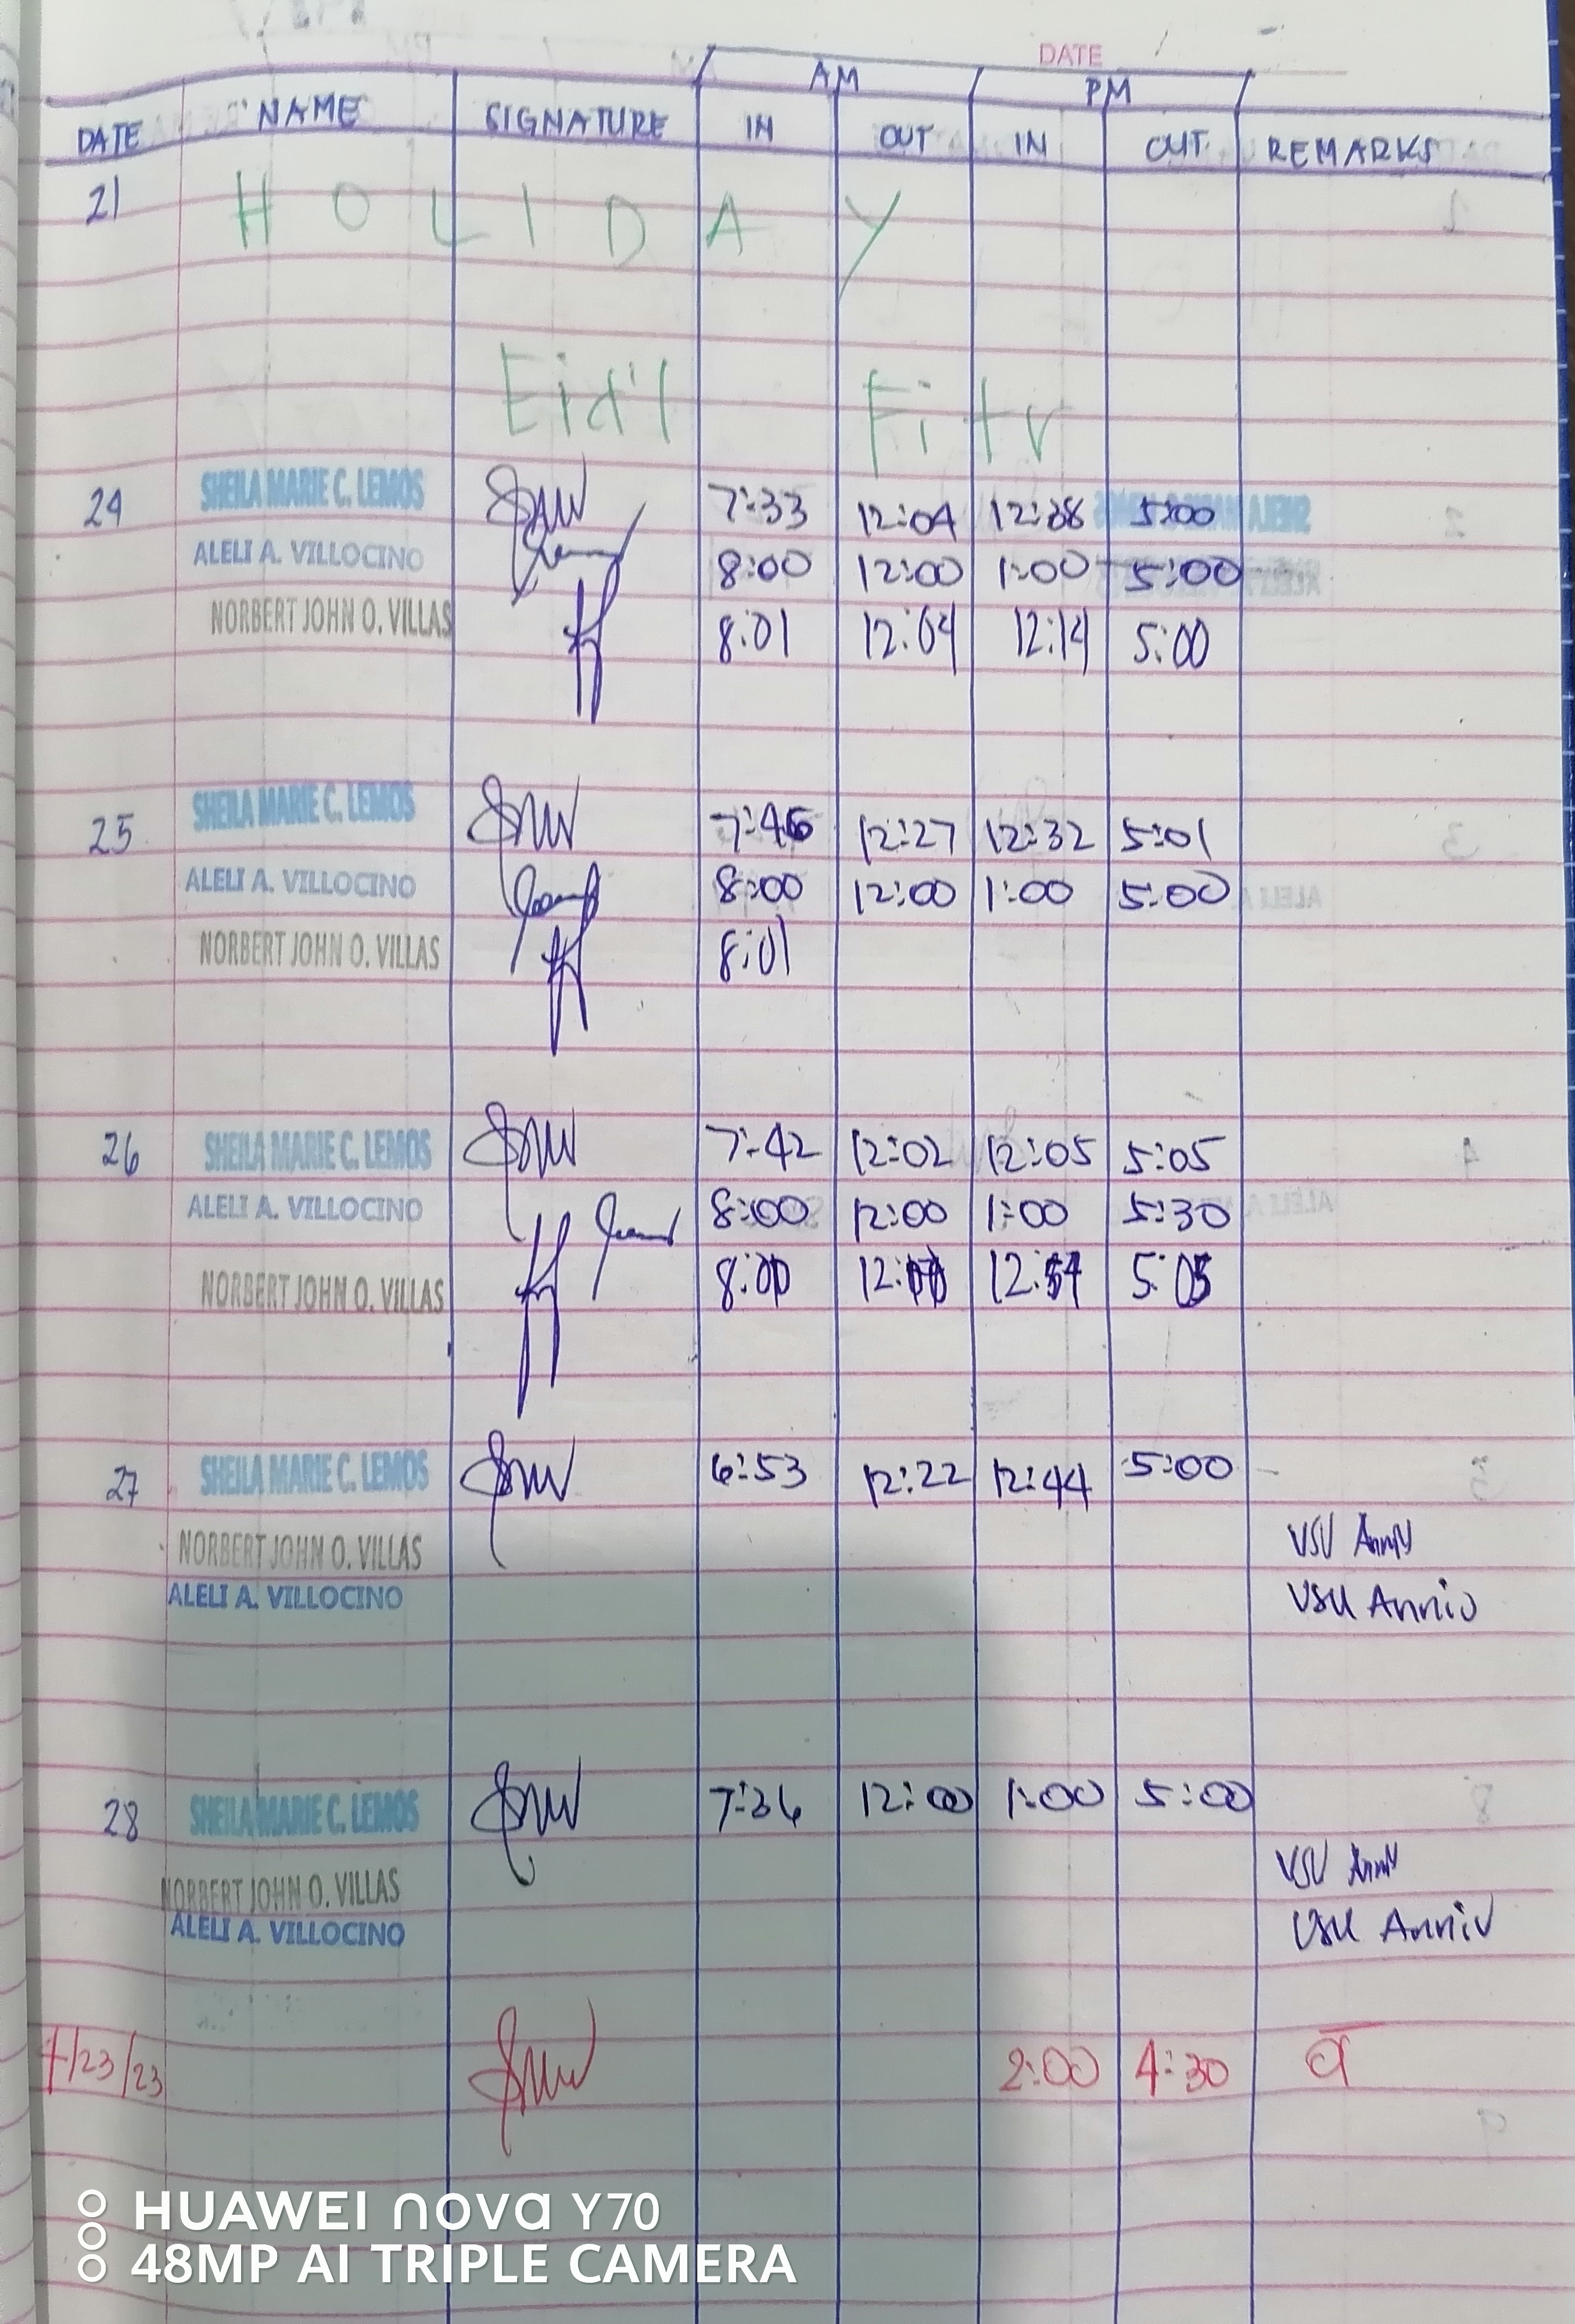 DATE
AM PM
DATE NAME SIGNATURE IN OUT IN OUT REMARKS
21 HOLIDAY
Eid'l Fitr
24 SHEILA MARIE C. LEMOS 7:33 12:04 5:00
ALELI A. VILLOCINO 8:00 12:00 1:00 5:00
NORBERT JOHN O. VILLAS 8:01 12:04 12:14 5:00
25 SHEILA MARIE C. LEMOS 7:46 12:27 12:32 5:01
ALELI A. VILLOCINO 8:00 12:00 1:00 5:00
NORBERT JOHN O. VILLAS 8:01
26 SHEILA MARIE C. LEMOS 7:42 12:02 12:05 5:05
ALELI A. VILLOCINO 8:00 12:00 1:00 5:30
NORBERT JOHN O. VILLAS 5:05
27 SHEILA MARIE C. LEMOS 6:53 12:22 12:44 5:00
NORBERT JOHN O. VILLAS VSU
ALELI A. VILLOCINO VSU Anniv
28 SHEILA MARIE C. LEMOS 7:36 12:00 1:00 5:00
NORBERT JOHN O. VILLAS VSU
ALELI A. VILLOCINO VSU Anniv
4/23/23 2:00 4:30
HUAWEI nova Y70
48MP AI TRIPLE CAMERA